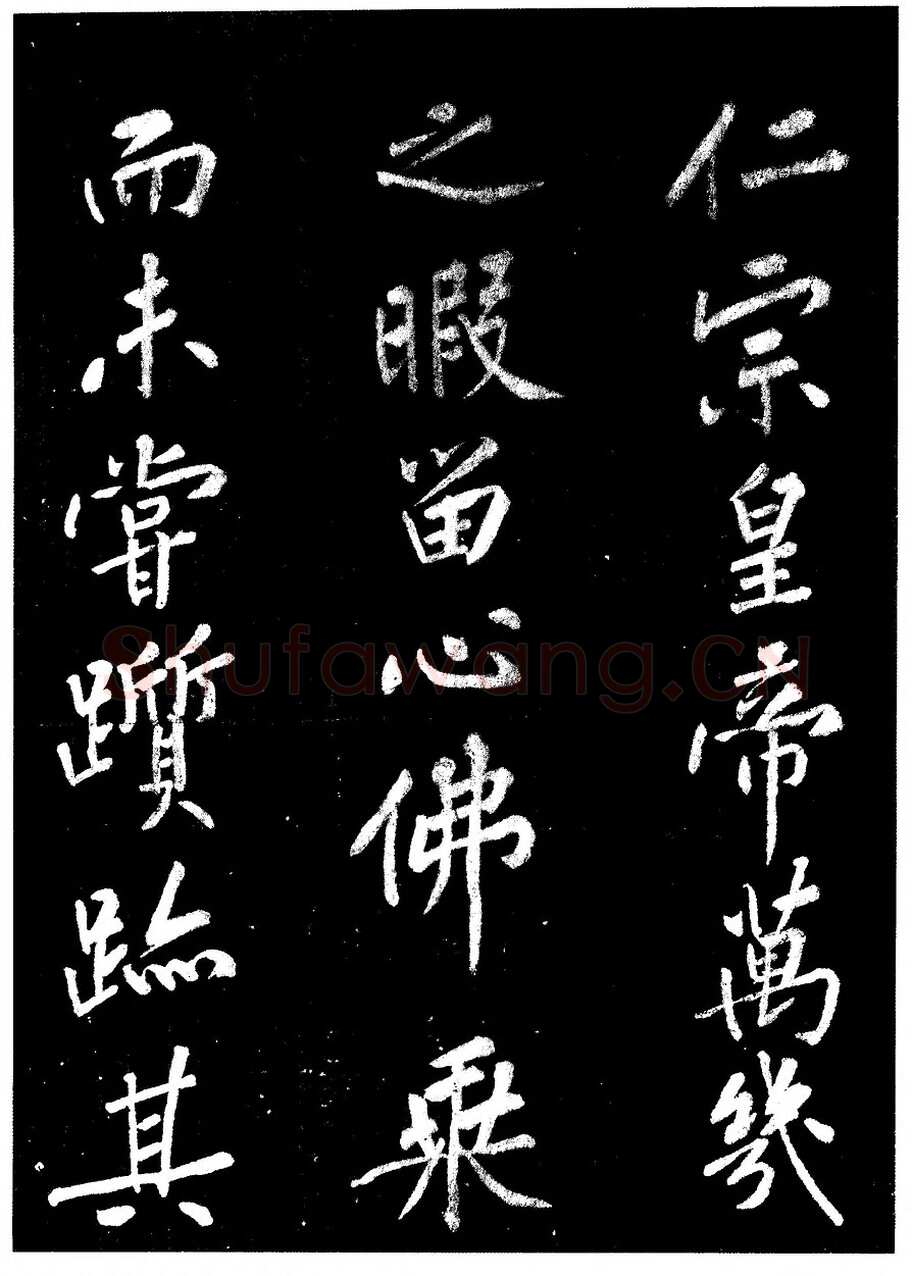 仁宗皇帝萬幾
之暇留心佛乘
而未甞躓其
Shufawang.cn